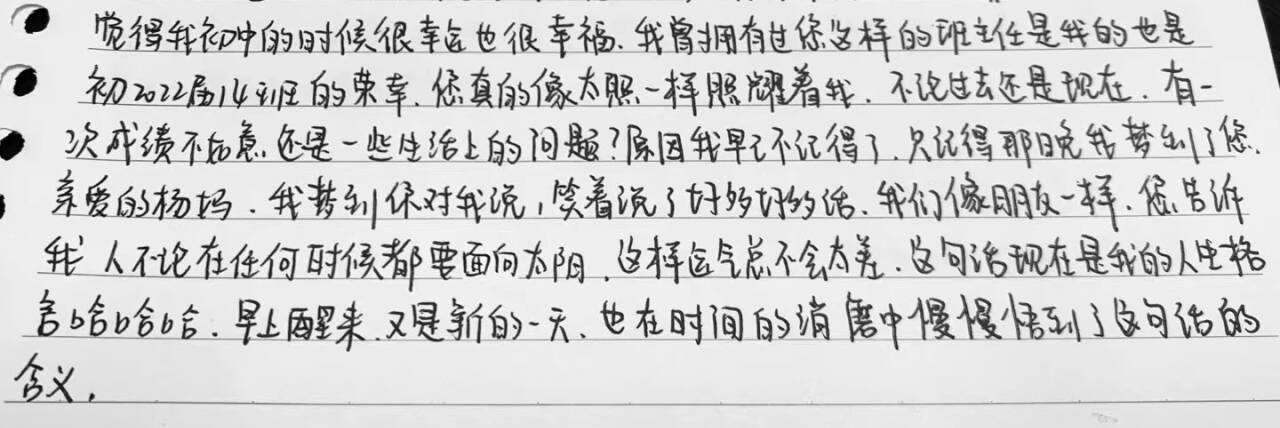 觉得我初中的时候很幸运也很幸福.我曾拥有过您这样的班主任是我的也是
初2022届14班的荣幸.您真的像太照一样照耀着我.不论过去还是现在.有一
次成绩不如意.还是一些生活上的问题?原因我早已不记得了.只记得那晚我梦到了您.
亲爱的杨妈.我梦到你对我说,笑着说了好多好多的话.我们像朋友一样.您告诉
我 人不论在任何时候都要面向太阳.这样运气总不会太差.这句话现在是我的人生格
言哈哈哈.早上醒来.又是新的一天.也在时间的消磨中慢慢悟到了这句话的
含义.